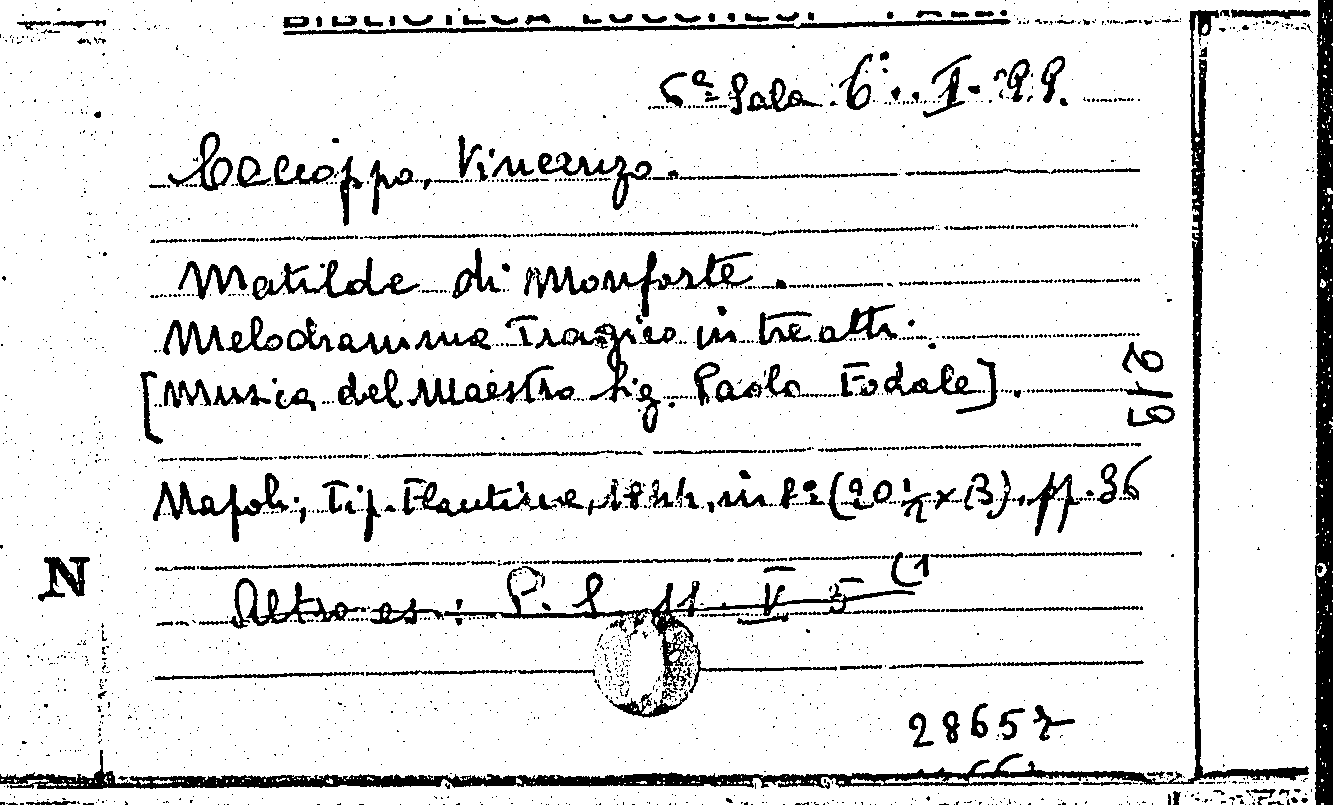 BIBLIOTECA LUCCHESI - PALLI
6ª Sala 6°.. I. 22.
Caccioppo, Vincenzo.
Matilde di Monforte.
Melodramma Tragico in tre atti.
[Musica del Maestro Sig. Paolo Fodale].
Napoli, Tip. Flautina, 1844, in 8° (20½ x 13), pp. 36
Altro es:
N